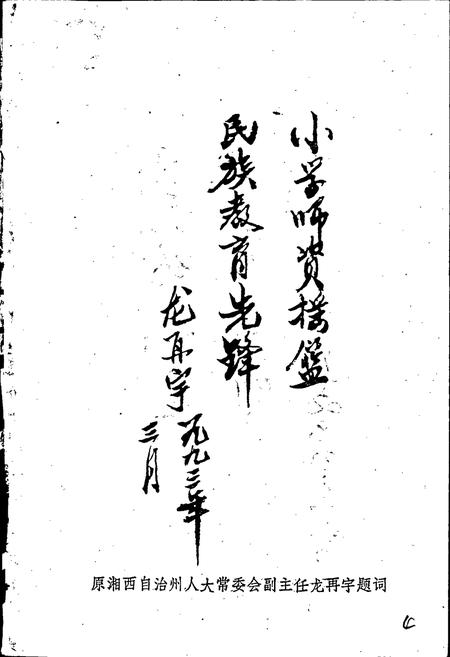 小学师资摇篮
民族教育先锋
龙再宇
一九九三年
三月
原湘西自治州人大常委会副主任龙再宇题词